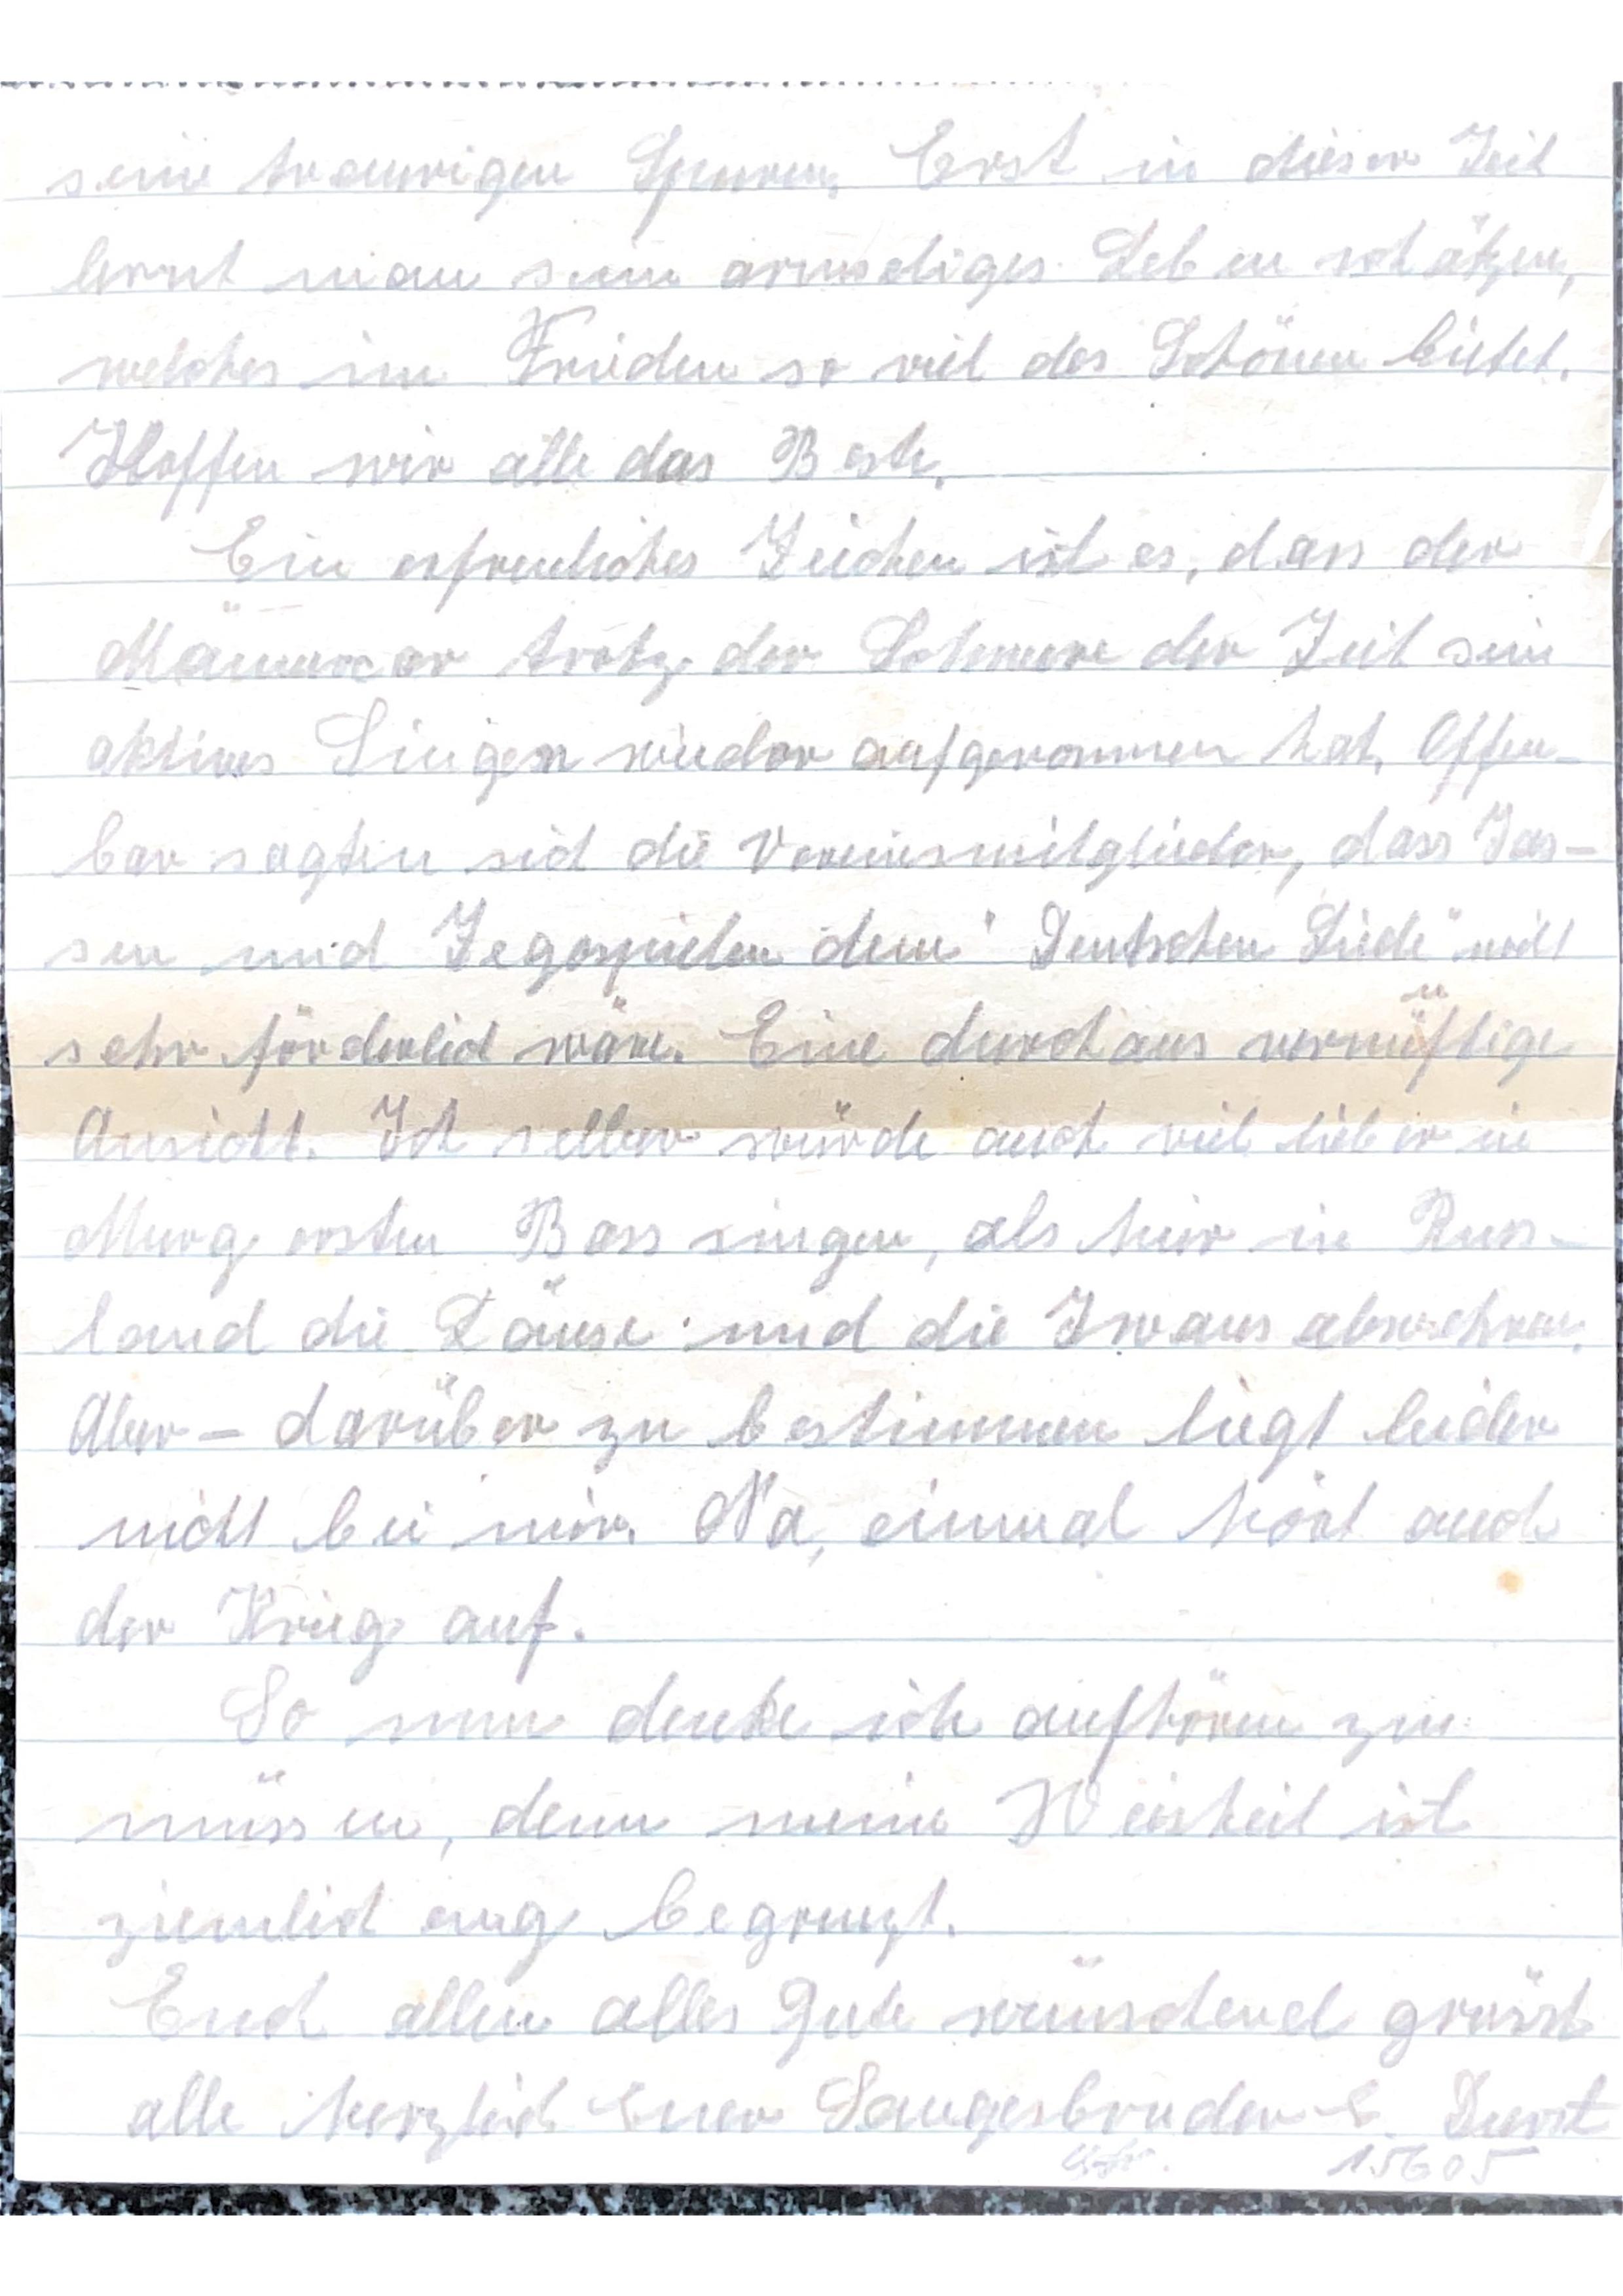 seine traurigen Spuren. Erst in dieser Zeit
lernt man sein armseliges Leben schätzen,
welches im Frieden so viel des Schönen bietet.
Hoffen wir alle das Beste.
Ein erfreuliches Zeichen ist es, dass der
Männerchor trotz der Schwere der Zeit sein
aktives Singen wieder aufgenommen hat. Offen-
bar sagten sich die Vereinsmitglieder, dass Jas-
sen und Zegospielen dem "Deutschen Liede" nicht
sehr förderlich wäre. Eine durchaus vernünftige
Ansicht. Ich selber würde auch viel lieber in
Murg ersten Bass singen, als hier in Russ-
land die Läuse und die Iwans abwehren.
Aber – darüber zu bestimmen liegt leider
nicht bei mir. Na, einmal hört auch
der Krieg auf.
So nun denke ich aufhören zu
müssen, denn meine Weisheit ist
ziemlich eng begrenzt.
Euch allen alles Gute wünschend grüsst
alle herzlich Euer Sangesbruder E. Durst
15605